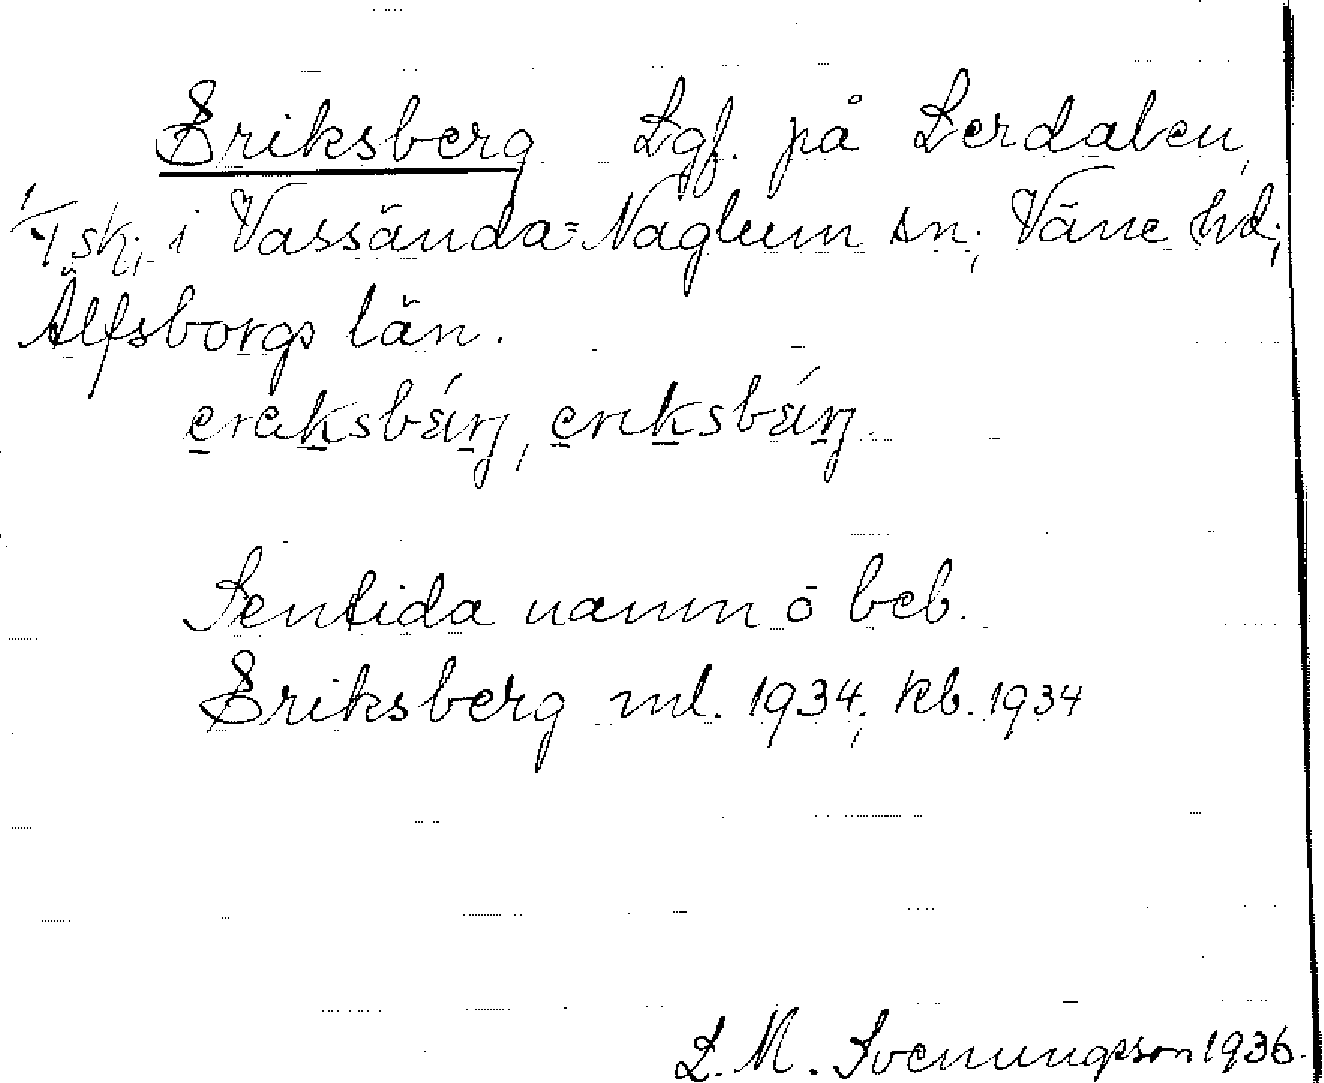 Eriksberg Lgf. på Lerdalen,
1/1 sk, i Vassända=Naglum sn, Väne hd,
Älfsborgs län.
Sentida namn å beb.
Eriksberg ml. 1934, kb. 1934
L. M. Svenungsson 1936.